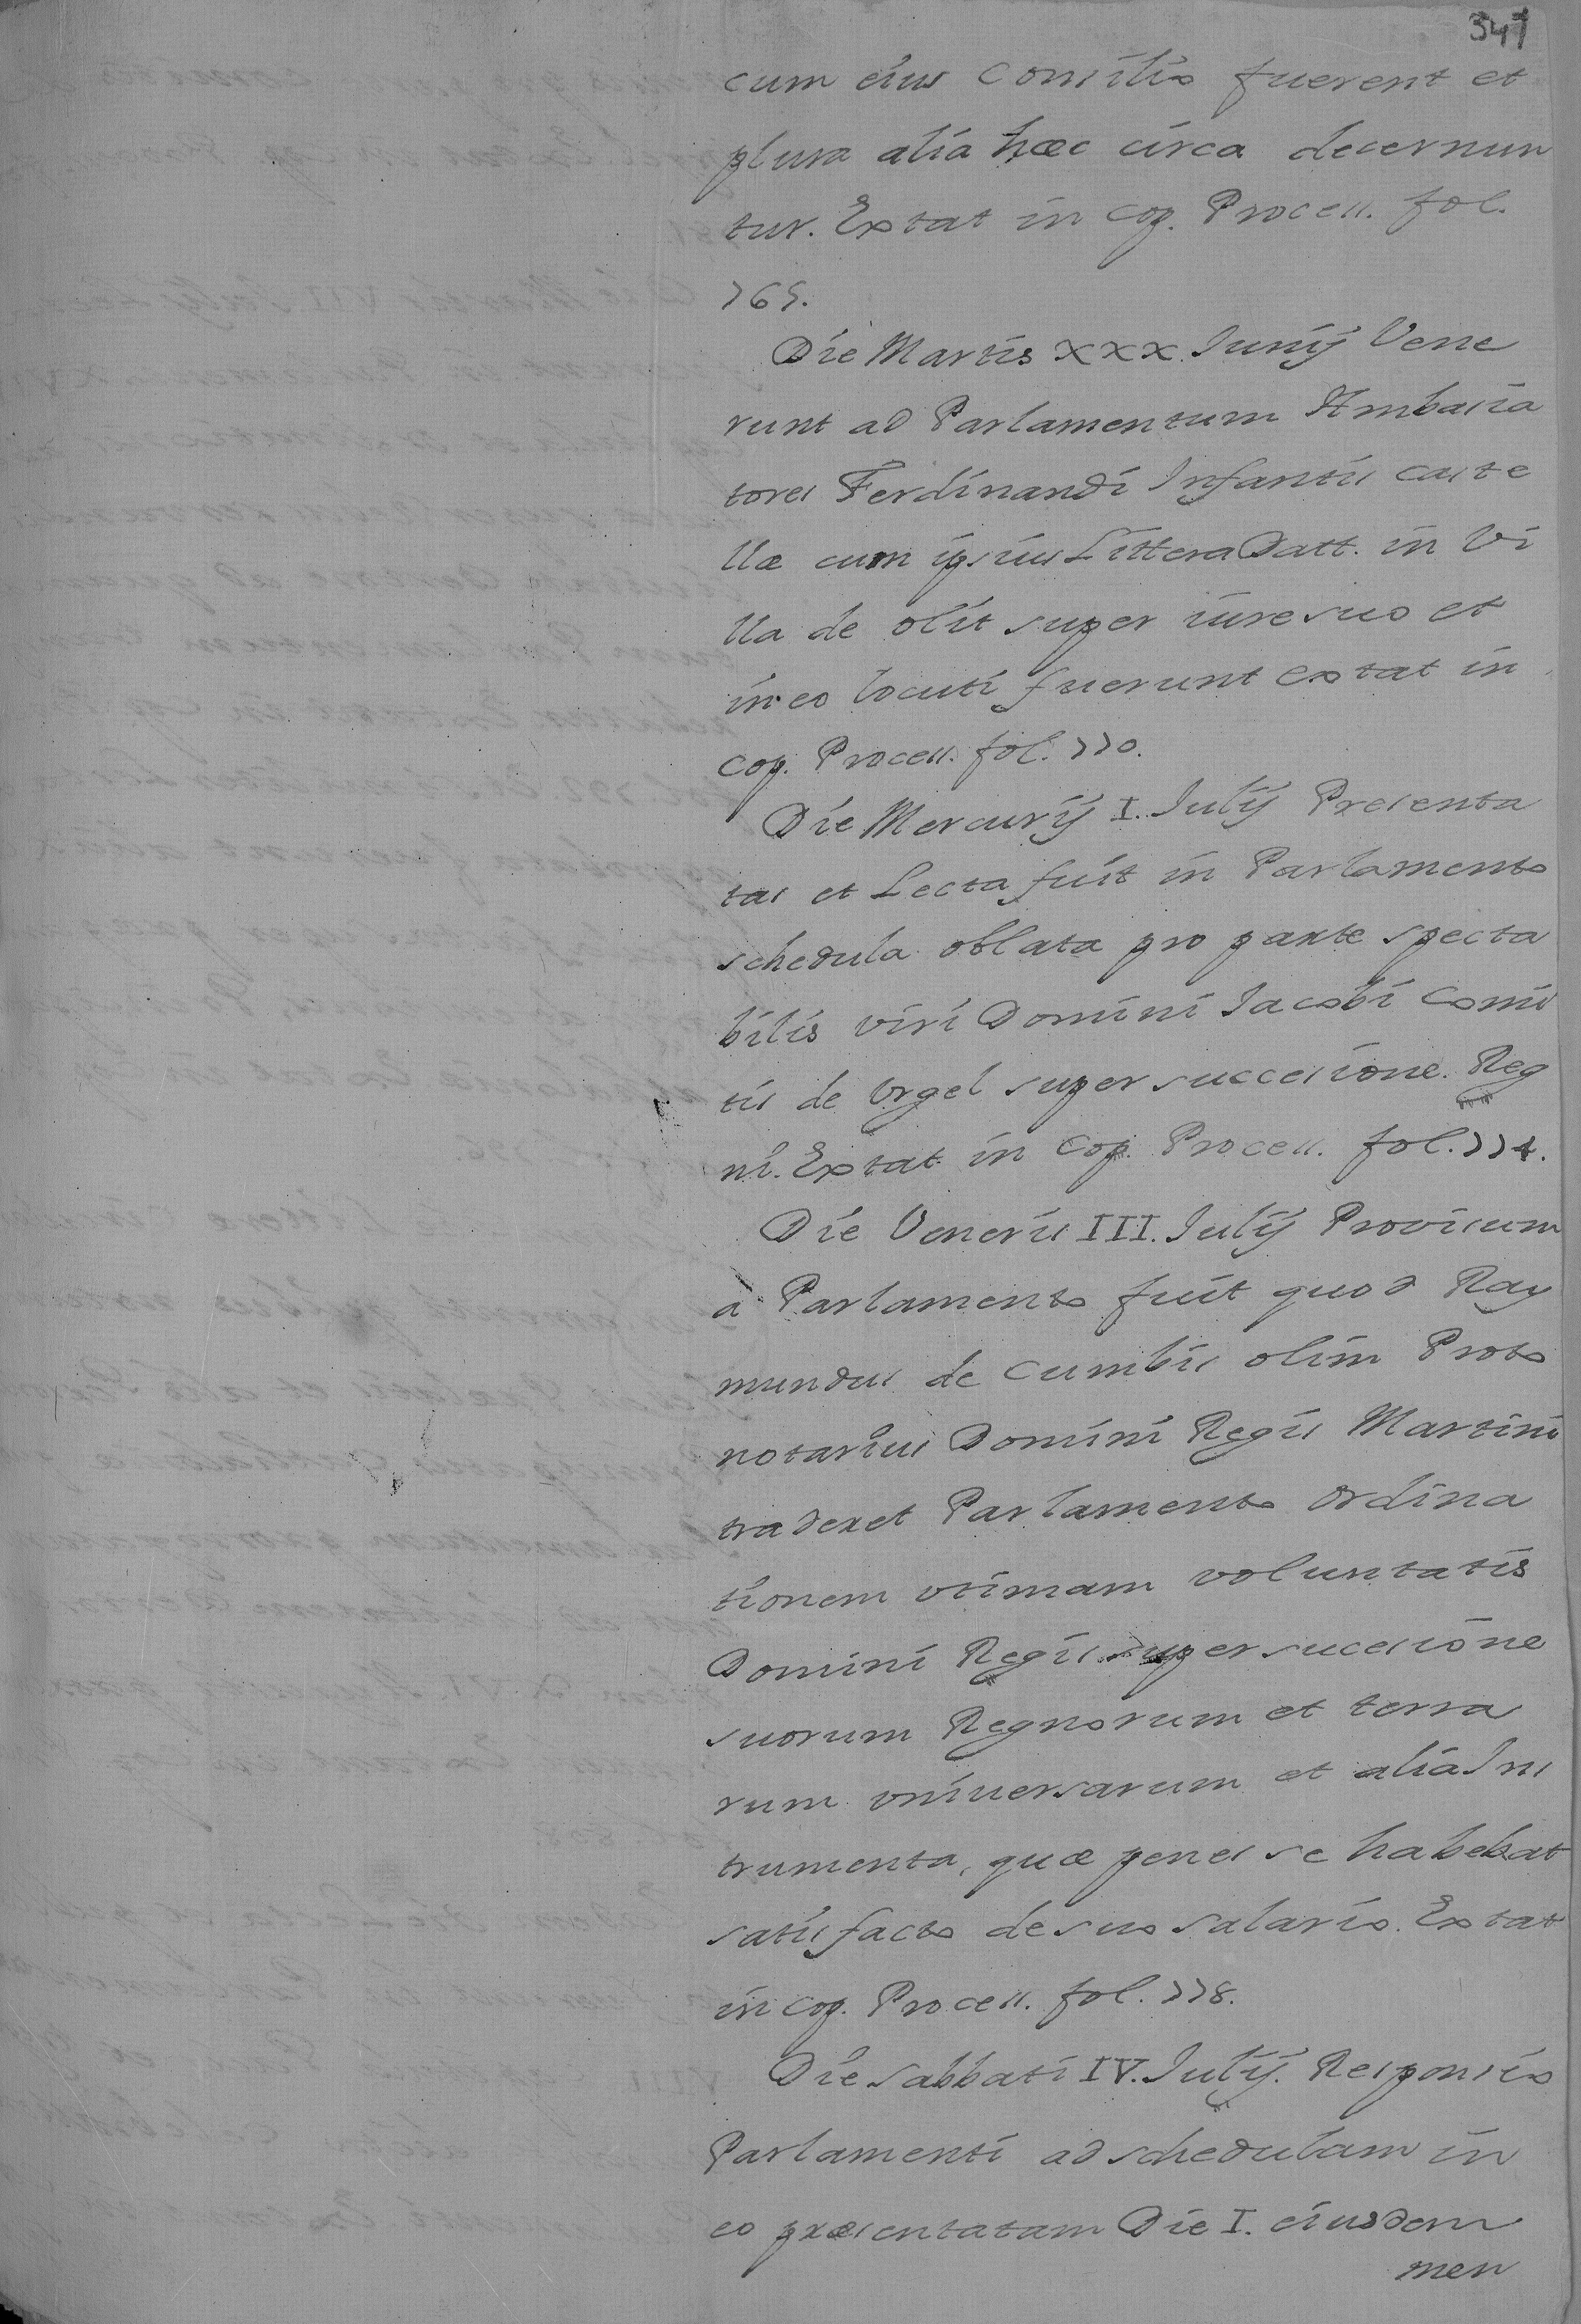 347
cum eius Consilio fuerent et
plura alia hæc circa decernun
tur. Extat in cop. Process. fol.
765.
Die Martis XXX. Junij Vene
runt ad Parlamentum Ambasia
tores Ferdinandi Infantis caste
llæ cum ipsius Littera Datt. in Vi
lla de olit super iure suo et
in eo locuti fuerunt extat in
cop. Process. fol. 770.
Die Mercurij I. Julij Presenta
tas et Lecta fuit in Parlamento
schedula oblata pro parte specta
bilis viri Domini Jacobi Comi
tis de Vrgel super successione. Reg
ni. Extat in cop. Process. fol. 774.
Die Veneris III. Julij Provisum
a Parlamento fuit quod Ray
mundus de Cumbis olim Proto
notarius Domini Regis Martini
traderet Parlamento ordina
tionem vtimam voluntatis
Domini Regis super sucessione
suorum Regnorum et terra
rum vniuersarum et alia Ins
trumenta, quæ penes se habebat
satisfacto de suo salario. Extat
in cop. Process. fol. 778.
Die sabbati IV. Julij. Responsio
Parlamenti ad schedulam in
eo præsentatam Die I. eiusdem
men